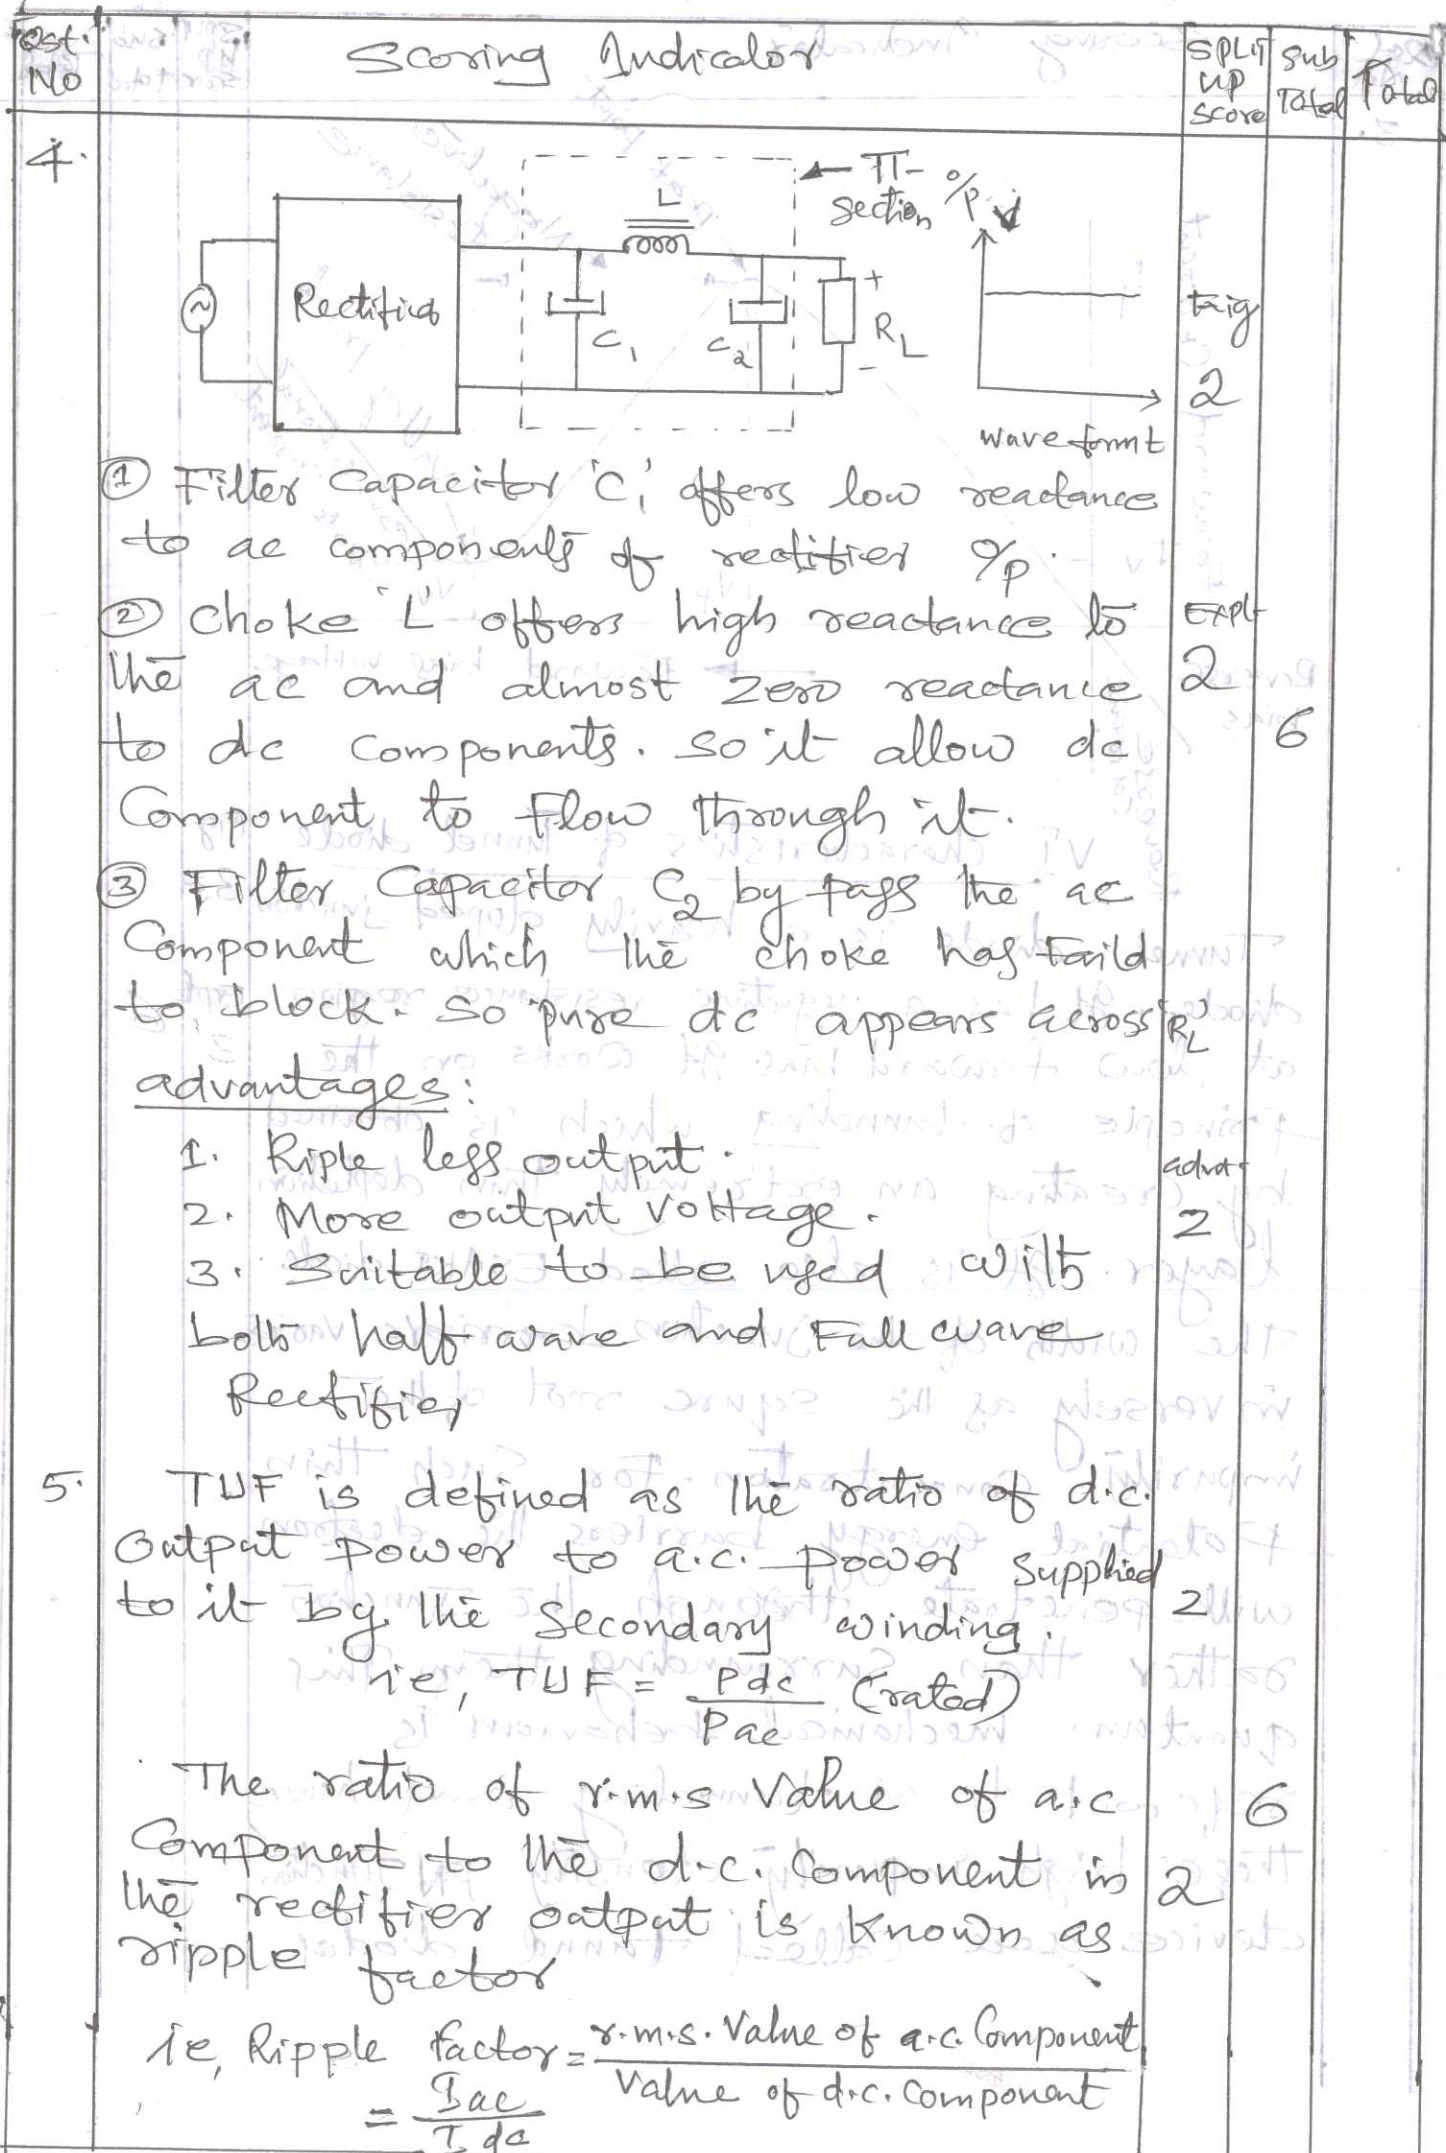 Qst. No
Scoring Indicator
SPLIT up score
Sub Total
Total
4.
Π- section
o/p v
L
Rectifier
C1
C2
+
RL
-
wave form t
Fig
2
① Filter Capacitor 'C1' offers low reactance
to ac components of rectifier o/p.
② Choke 'L' offers high reactance to
the ac and almost zero reactance
to dc components. So it allow dc
Component to Flow through it.
Expl-
2
6
③ Filter Capacitor C2 by pass the ac
Component which the choke has faild
to block. So pure dc appears across 'RL'
advantages:
1. Riple less output.
2. More output voltage.
3. Suitable to be used with
both half wave and Full wave
Rectifier
advt-
2
5.
TUF is defined as the ratio of d.c.
Output power to a.c. power supplied
to it by the Secondary winding.
2
ie, TUF = Pdc / Pac (rated)
The ratio of r.m.s Value of a.c
Component to the d.c. Component in
the rectifier output is known as
ripple factor
2
6
ie, Ripple factor = r.m.s. Value of a.c. Component / Value of d.c. Component
= Iac / Idc